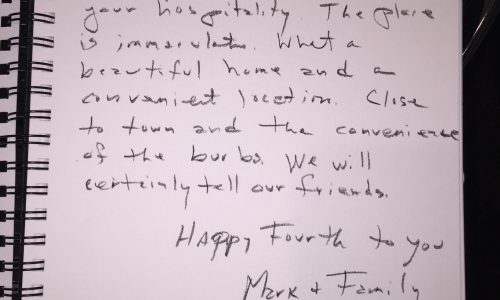 your hospitality. The place
is immaculate. What a
beautiful home and a
convenient location. Close
to town and the convenience
of the burbs. We will
certainly tell our friends.
Happy Fourth to you
Mark + Family